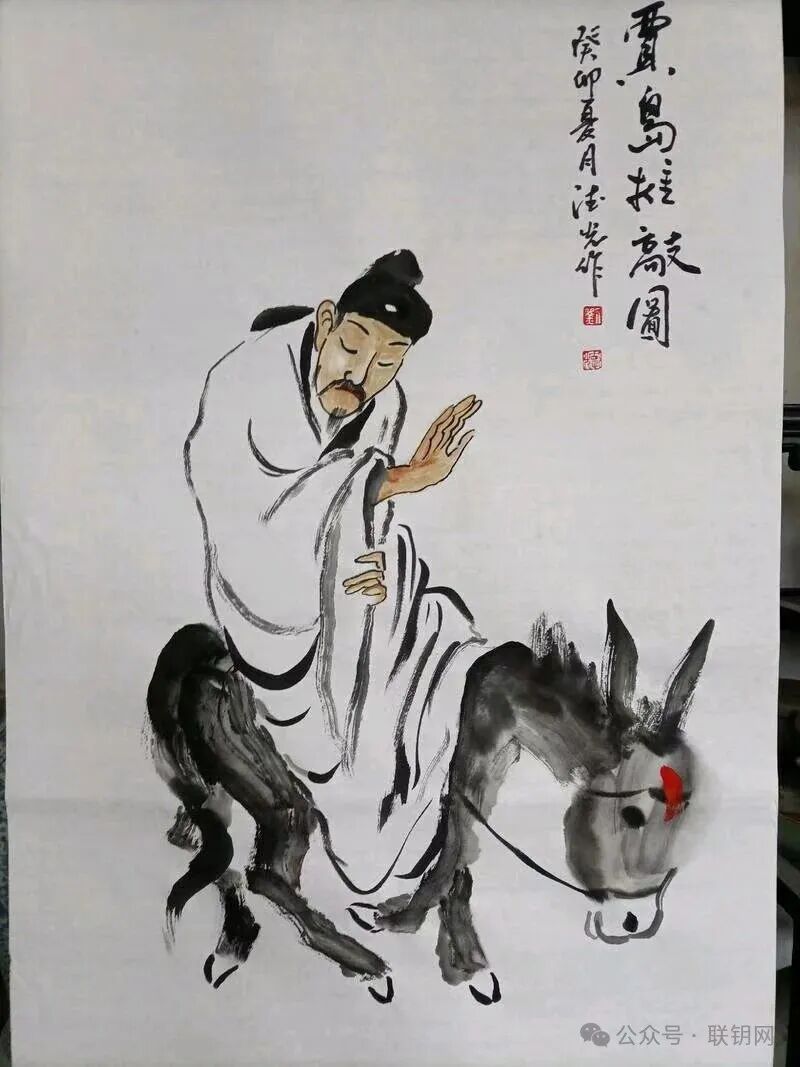 賈島推敲圖
癸卯夏月德光作
劉
公众号·联钥网